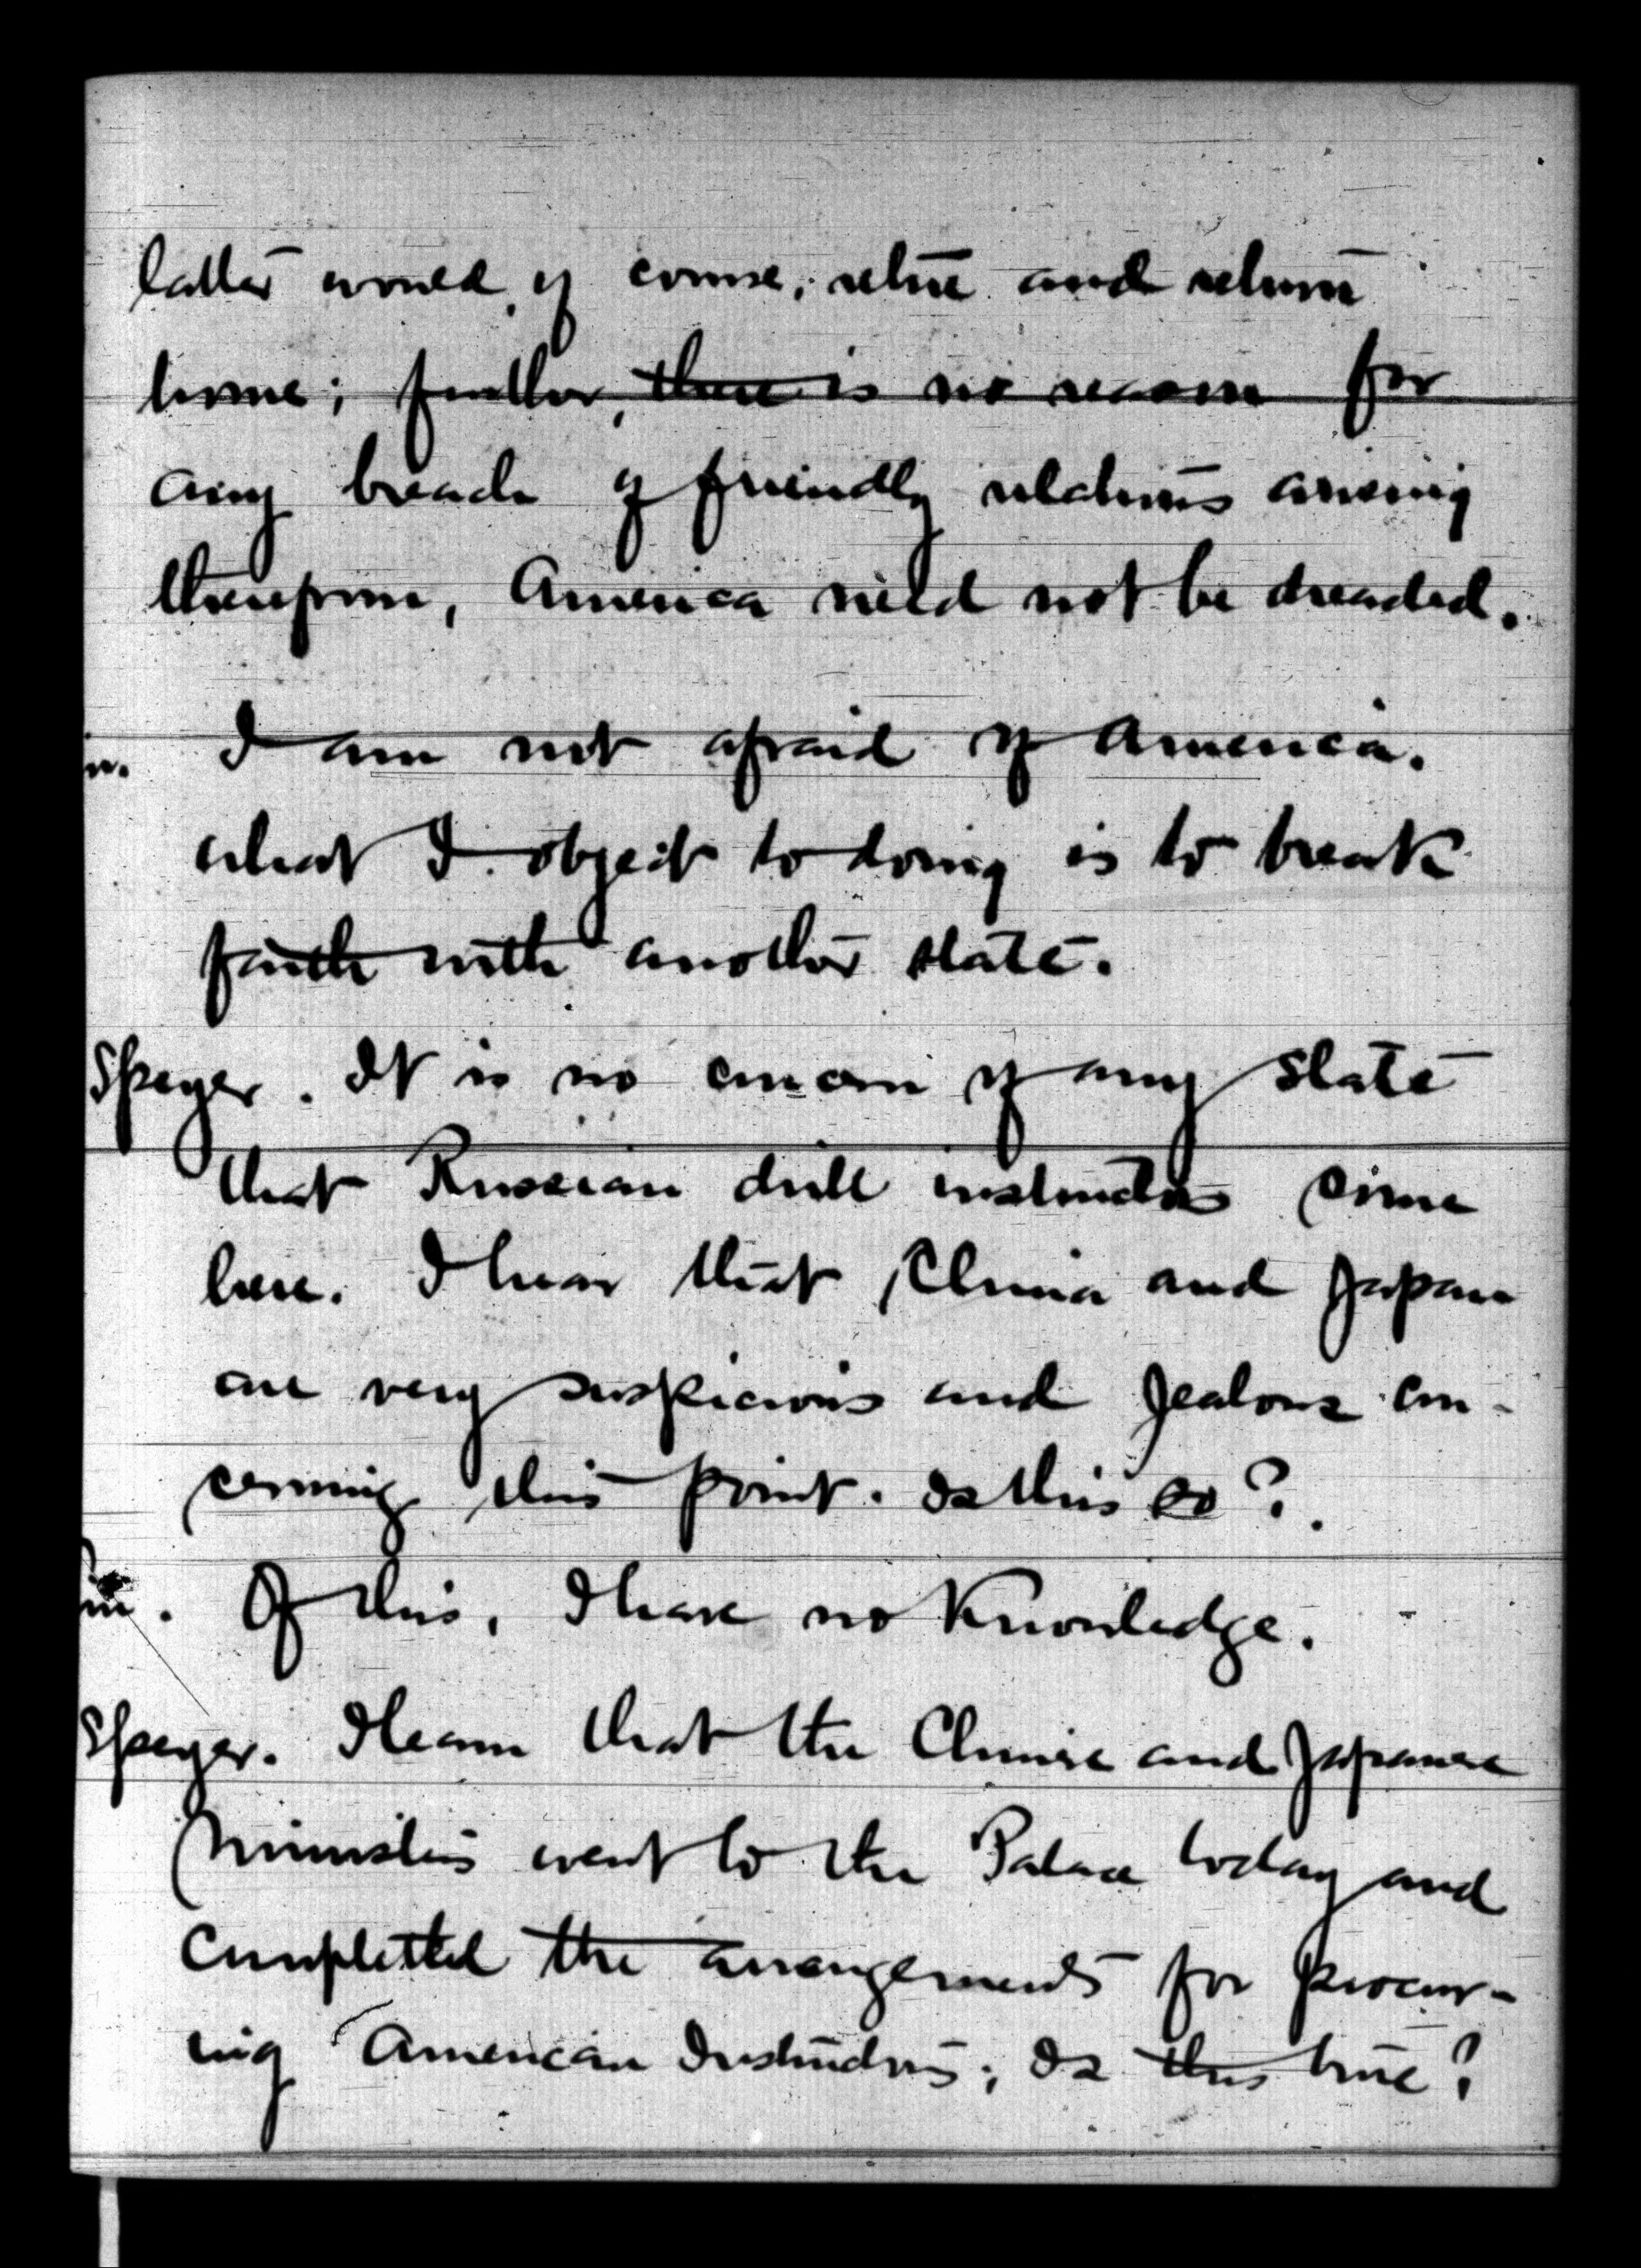 latter would, of course, retire and return
home; further, there is no reason for
any breach of friendly relations arising
therefrom, America need not be dreaded.
I am not afraid of America.
what I object to doing is to break
faith with another state.
Speyer. It is no concern of any state
that Russian drill instructors come
here. I hear that China and Japan
are very suspicious and jealous con-
cerning this point. Is this so?.
Of this, I have no knowledge.
Speyer. I learn that the Chinese and Japanese
Ministers went to the Palace today and
completed the arrangements for procur-
ing American Instructors; Is this true?